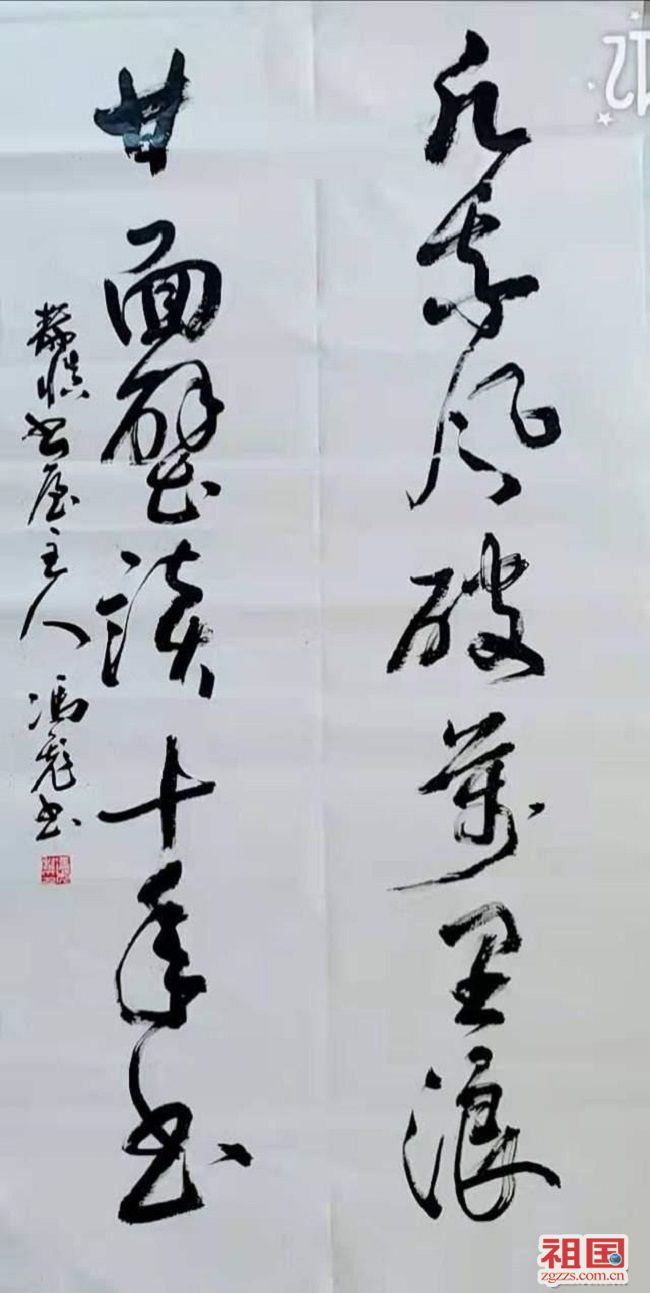 乘风破萬里浪
甘面壁读十年书
静慎书屋主人 冯彪书
祖国
zgzzs.com.cn